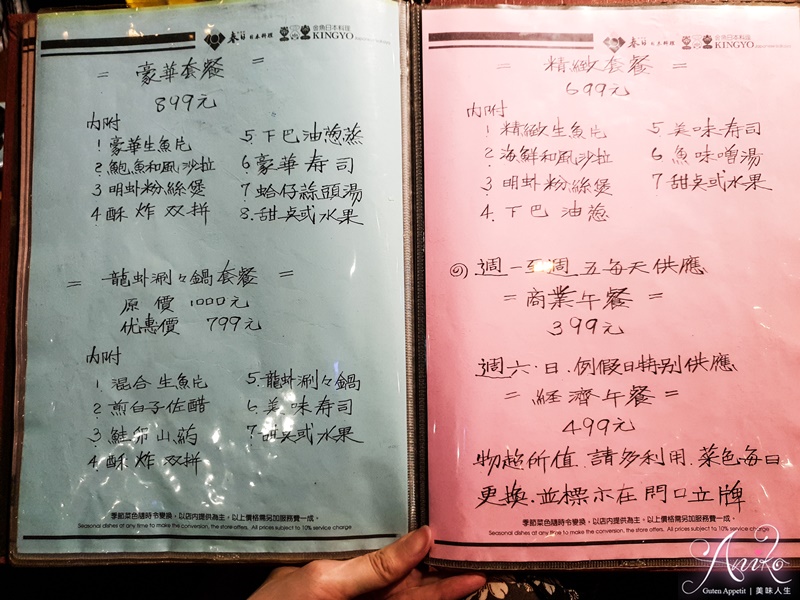 春日 日本料理 金魚日本料理 KINGYO
= 豪華套餐 =
899元
內附
1 豪華生魚片
2 鮑魚和風沙拉
3 明虾粉絲煲
4 酥炸双拼
5. 下巴油蔥蒸
6 豪華寿司
7 蛤仔蒜頭湯
8. 甜桌或水果
= 龍虾涮々鍋套餐 =
原價 1000元
优惠價 799元
內附
1 混合生魚片
2 煎白子佐醋
3 鮭卵山药
4 酥炸双拼
5. 龍虾涮々鍋
6. 美味寿司
7 甜桌或水果
季節菜色隨時令變換，以店內提供為主，以上價格需另加服務費一成。
Seasonal dishes at any time to make the conversion, the store offers. All prices subject to 10% service charge
春日 日本料理 金魚日本料理 KINGYO
= 精緻套餐 =
699元
內附
1 精緻生魚片
2 海鮮和風沙拉
3 明虾粉絲煲
4. 下巴油蔥
5 美味寿司
6 魚味噌湯
7 甜桌或水果
週一至週五每天供應
= 商業午餐 =
399元
週六.日.例假日特别供應
= 經濟午餐 =
499元
物超所值.請多利用.菜色每日
更換.並標示在門口立牌
季節菜色隨時令變換，以店內提供為主，以上價格需另加服務費一成。
Seasonal dishes at any time to make the conversion, the store offers. All prices subject to 10% service charge
Aniko
Guten Appetit | 美味人生